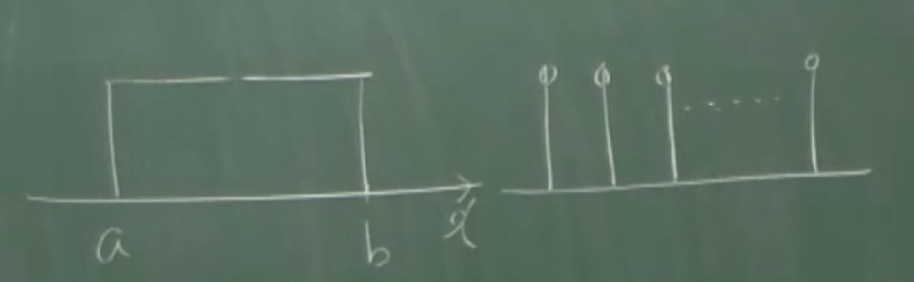 a b x